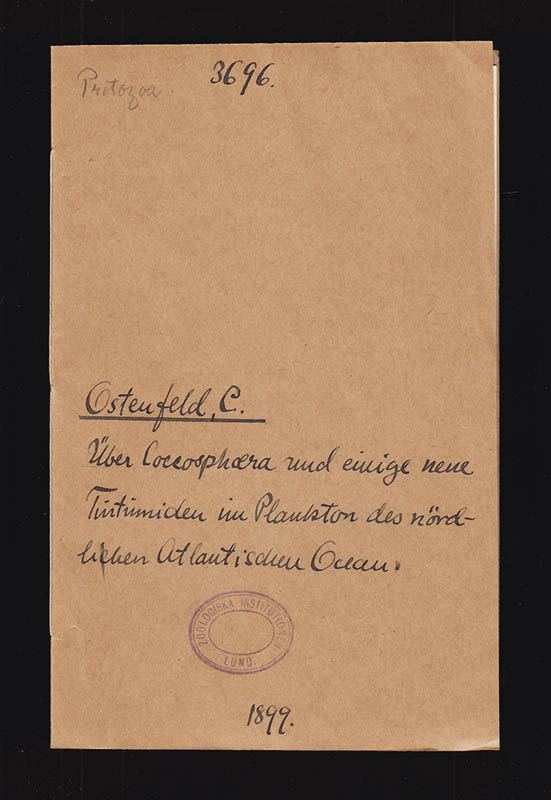 Protozoa
3696.
Ostenfeld, C.
Über Coccosphæra und einige neue
Tintinniden im Plankton des nörd-
lichen Atlantischen Ocean.
ZOOLOGISKA INSTITUTIONEN
LUND.
1899.